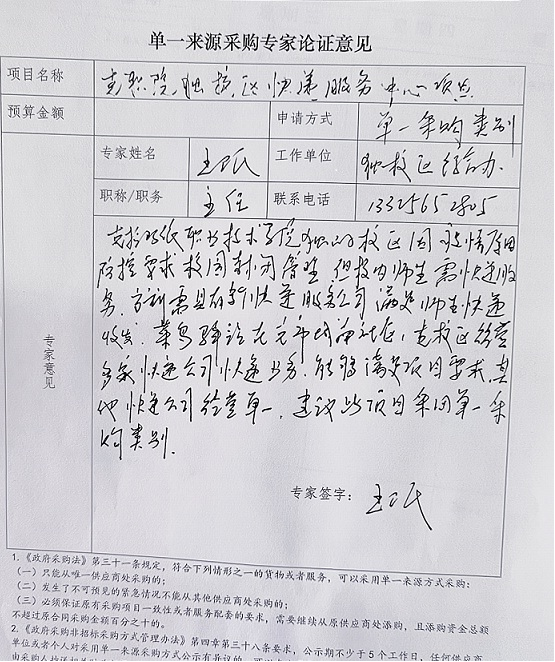 单一来源采购专家论证意见
项目名称 克职院独校区快递服务中心项目
预算金额 申请方式 单一采购类别
专家姓名 王 民 工作单位 独校区综合办
职称/职务 主任 联系电话 13325652805
专家意见
职业技术学院独山校区因疫情原因
防控要求校园封闭管理,但校内师生需快递收
务,方 需具有 快递服务公司满足师生快递
收发。菜鸟驿站在 克校区经营
多家快递公司快递业务,能够满足项目要求,其
他快递公司经营单一,建议此项目采用单一采
购类别.
专家签字: 王 民
1.《政府采购法》第三十一条规定,符合下列情形之一的货物或者服务,可以采用单一来源方式采购:
(一)只能从唯一供应商处采购的;
(二)发生了不可预见的紧急情况不能从其他供应商处采购的;
(三)必须保证原有采购项目一致性或者服务配套的要求,需要继续从原供应商处添购,且添购资金总额
不超过原合同采购金额百分之十的。
2.《政府采购非招标采购方式管理办法》第四章第三十八条要求,公示期不少于 5 个工作日,任何供应商、
单位或者个人对采用单一来源采购方式公示有异议的,可以